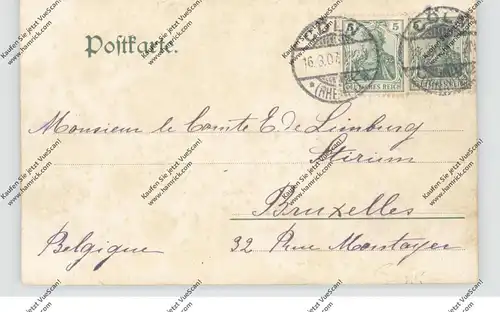 Postkarte.
CÖLN
16.3.07
*(RHEIN
5
DEUTSCHES REICH
CÖLN
Monsieur le Comte E. de Limburg
Stirum
Bruxelles
Belgique 32 Rue Montoyer
Kaufen Sie jetzt mit VueScan!
www.hamrick.com